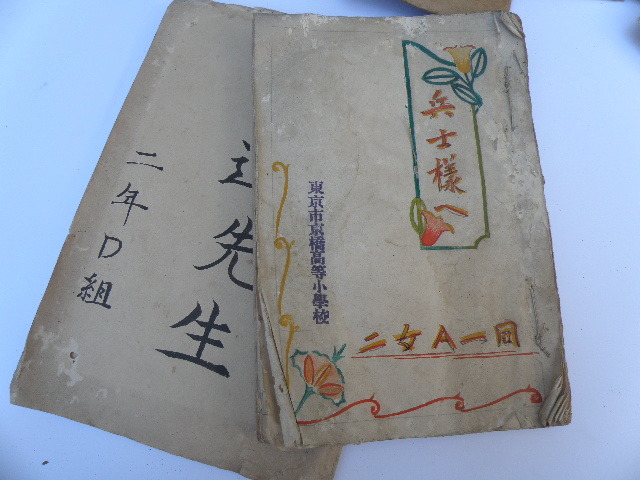 兵士樣へ
東京市京橋高等小學校
二女A一同
先生
二年D組